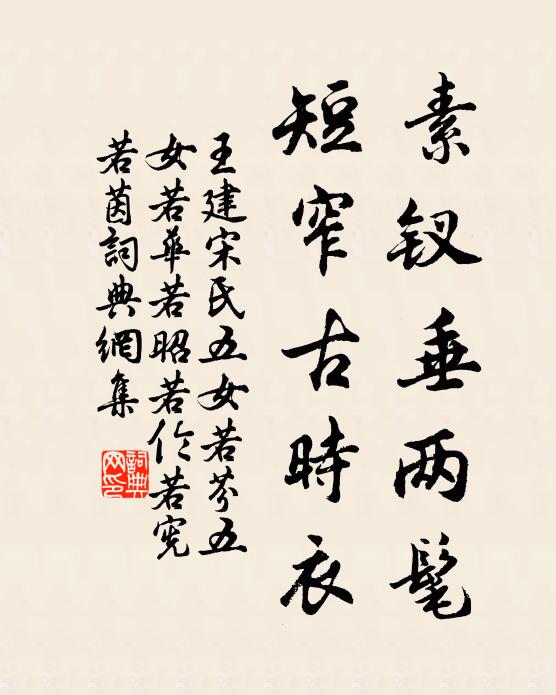 素钗垂两髦
短窄古時衣
王建宋氏五女若芬五
女若華若昭若伦若宪
若茵詞典網集
詞典网印